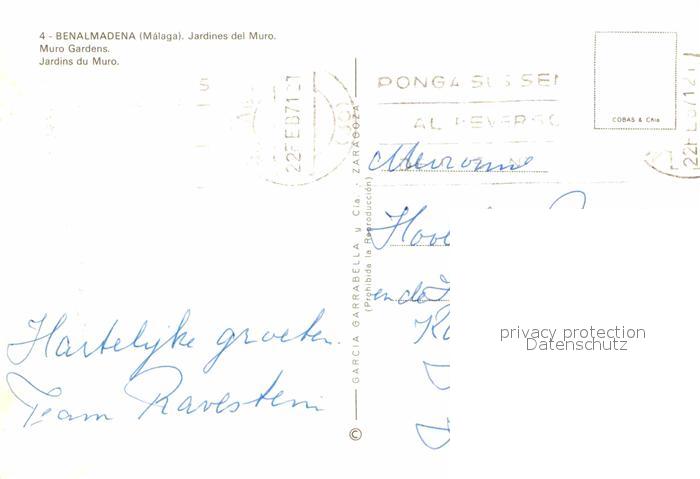 4 - BENALMADENA (Málaga). Jardines del Muro.
Muro Gardens.
Jardins du Muro.
22 FEB 71
PONGA SUS SEÑ
AL REVERSO
COBAS & Cñia
22 FEB 71
GARCIA GARRABELLA y Cía. - ZARAGOZA
(Prohibida la Reproducción)
©
Mevrouw
en de
Hartelijke groeten.
Team Ravestein
privacy protection
Datenschutz